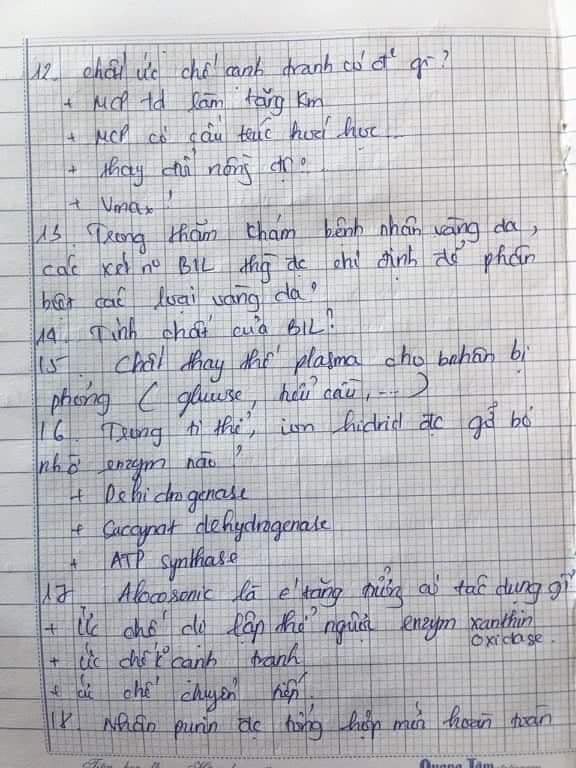 12. Chất ức chế cạnh tranh có đ² gì?
+ MCP td làm tăng Km
+ MCP có cấu trúc hoá học...
+ thay đổi nồng độ
+ Vmax
13. Trong thăm khám bệnh nhân vàng da,
các xét no BIL thg đc chỉ định để phân
biệt các loại vàng da?
14. Tính chất của BIL?
15. Chất thay thế plasma cho bnhân bị
phỏng ( gluose, hồng cầu, ... )
16. Trong ti thể, ion hidrid đc gỡ bỏ
nhờ enzym nào?
+ Dehidrogenase
+ Succynat dehydrogenase
+ ATP synthase
17 là có tác dụng gì?
+ Ức chế do lập thể người enzym xanthin
oxidase.
+ ức chế k cạnh tranh
+ ức chế chuyển tiếp.
18. Nhân purin đc tổng hợp mới hoàn toàn
Quang Tâm